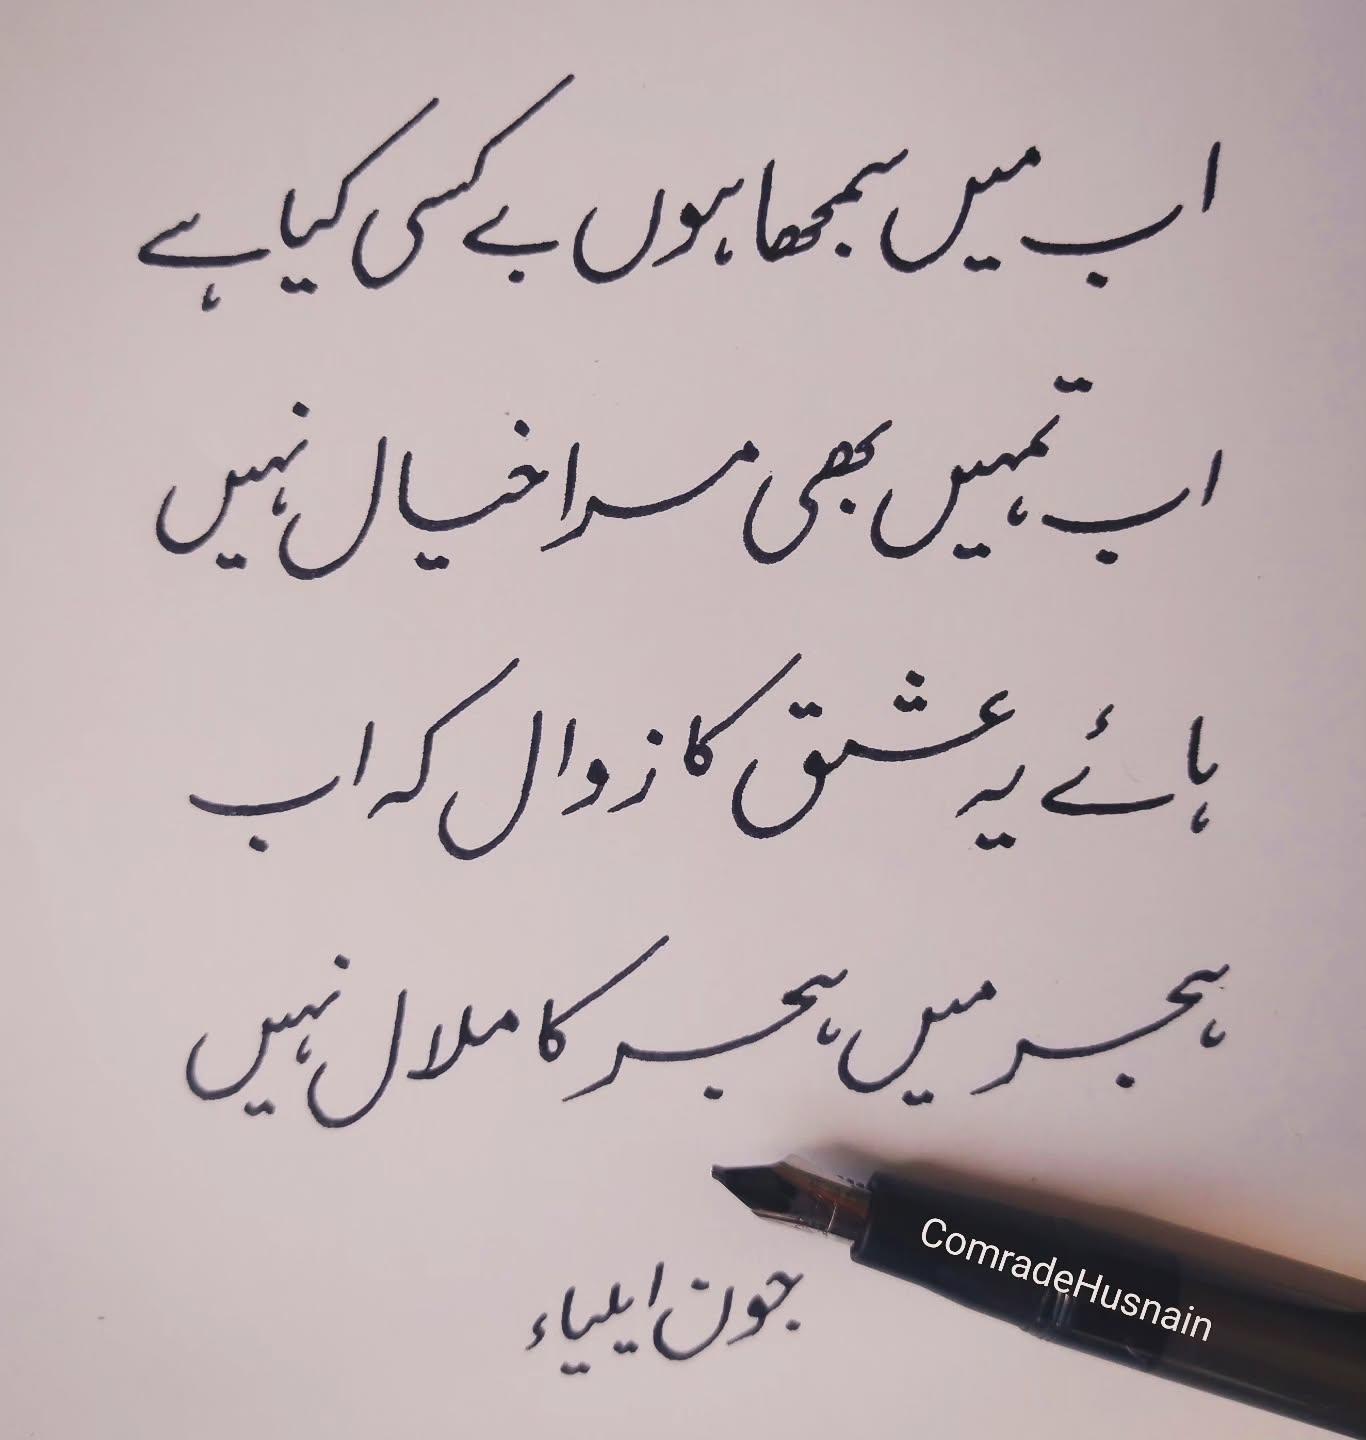 اب میں سمجھا ہوں بے کسی کیا ہے
اب تمہیں بھی مرا خیال نہیں
ہائے یہ عشق کا زوال کہ اب
ہجر میں ہجر کا ملال نہیں
جون ایلیاء
ComradeHusnain